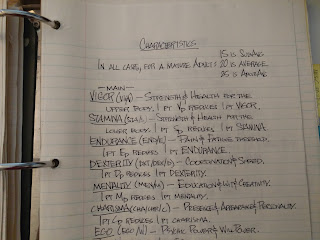 CHARACTERISTICS
15 IS AVERAGE
IN ALL CASES, FOR A MATURE ADULT: 20 IS AVERAGE
25 IS
—MAIN—
VIGOR (VIG) — STRENGTH & HEALTH FOR THE
UPPER BODY. 1 PT REQUIRES 1 PT VIGOR.
STAMINA (STA) — STRENGTH & HEALTH FOR THE
LOWER BODY. 1 PT REQUIRES 1 PT STAMINA
ENDURANCE (END/E) — PAIN & FATIGUE THRESHOLD.
1 PT EP REQUIRES 1 PT ENDURANCE.
DEXTERITY (DXT/DEX/D) — COORDINATION & SPEED.
1 PT DP REQUIRES 1 PT DEXTERITY.
MENTALITY (MEN/M) — EDUCATION & CREATIVITY.
1 PT MP REQUIRES 1 PT MENTALITY.
CHARISMA (CHA/CHR/C) — PRESENCE & APPEARANCE & PERSONALITY.
1 PT CP REQUIRES 1 PT CHARISMA.
EGO — PSYCHIC POWER & WILLPOWER.